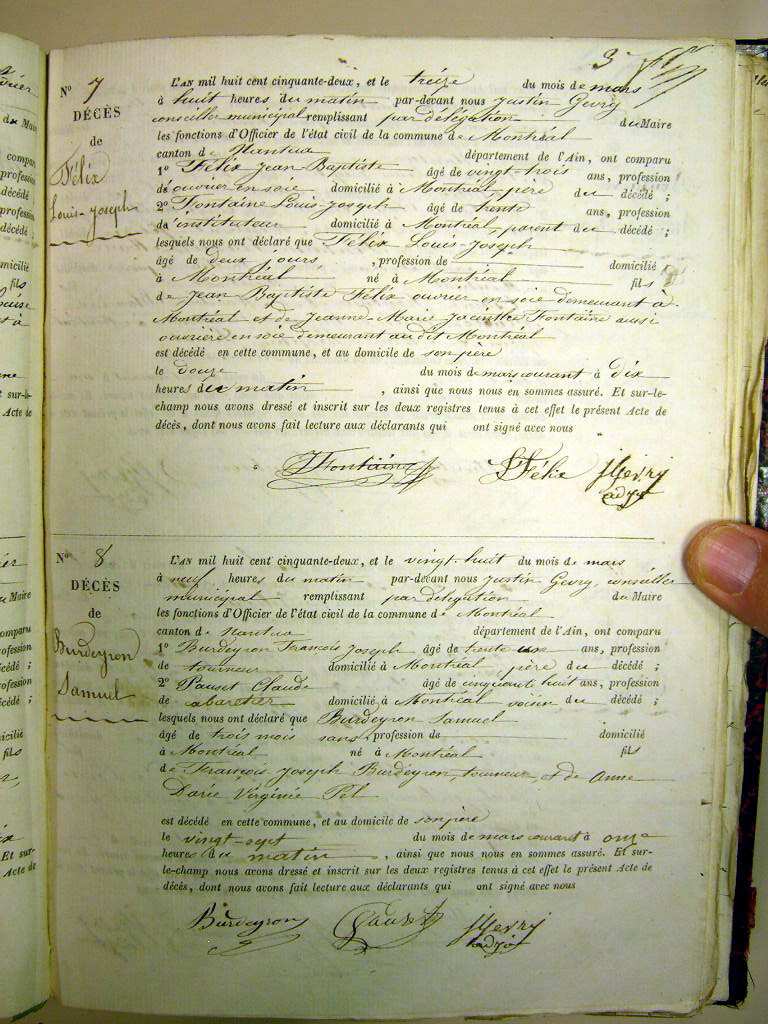 3
N° 7
DÉCÈS
de
Félix
Louis-Joseph
L'AN mil huit cent cinquante-deux, et le treize du mois de mars
à huit heures du matin par-devant nous Justin Gevry
conseiller municipal remplissant par délégation du Maire
les fonctions d'Officier de l'état civil de la commune de Montréal
canton de Nantua département de l'Ain, ont comparu
1° Félix Jean Baptiste âgé de vingt-trois ans, profession
de ouvrier en soie domicilié à Montréal, père du décédé ;
2° Fontaine Louis Joseph âgé de trente ans, profession
de instituteur domicilié à Montréal, parent du décédé ;
lesquels nous ont déclaré que Félix Louis-Joseph
âgé de deux jours, profession de domicilié
à Montréal né à Montréal fils
de Jean Baptiste Félix ouvrier en soie demeurant à
Montréal et de Jeanne-Marie Jacinthe Fontaine aussi
ouvrière en soie demeurant audit Montréal
est décédé en cette commune, et au domicile de son père
le douze du mois de mars courant à dix
heures du matin, ainsi que nous nous en sommes assuré. Et sur-le-
champ nous avons dressé et inscrit sur les deux registres tenus à cet effet le présent Acte de
décès, dont nous avons fait lecture aux déclarants qui ont signé avec nous
Fontaine Félix JGevry
adjt
N° 8
DÉCÈS
de
Burdeyron
Samuel
L'AN mil huit cent cinquante-deux, et le vingt-huit du mois de mars
à neuf heures du matin par-devant nous Justin Gevry, conseiller
municipal remplissant par délégation du Maire
les fonctions d'Officier de l'état civil de la commune de Montréal
canton de Nantua département de l'Ain, ont comparu
1° Burdeyron François Joseph âgé de trente ans, profession
de tourneur domicilié à Montréal, père du décédé ;
2° Pauset Claude âgé de cinquante huit ans, profession
de cabaretier domicilié à Montréal voisin du décédé ;
lesquels nous ont déclaré que Burdeyron Samuel
âgé de trois mois sans profession de domicilié
à Montréal né à Montréal fils
de François Joseph Burdeyron, tourneur, et de Anne
Darie Virginie Pel
est décédé en cette commune, et au domicile de son père
le vingt-sept du mois de mars courant à onze
heures du matin, ainsi que nous nous en sommes assuré. Et sur-
le-champ nous avons dressé et inscrit sur les deux registres tenus à cet effet le présent Acte de
décès, dont nous avons fait lecture aux déclarants qui ont signé avec nous
Burdeyron Pauset JGevry
adjt